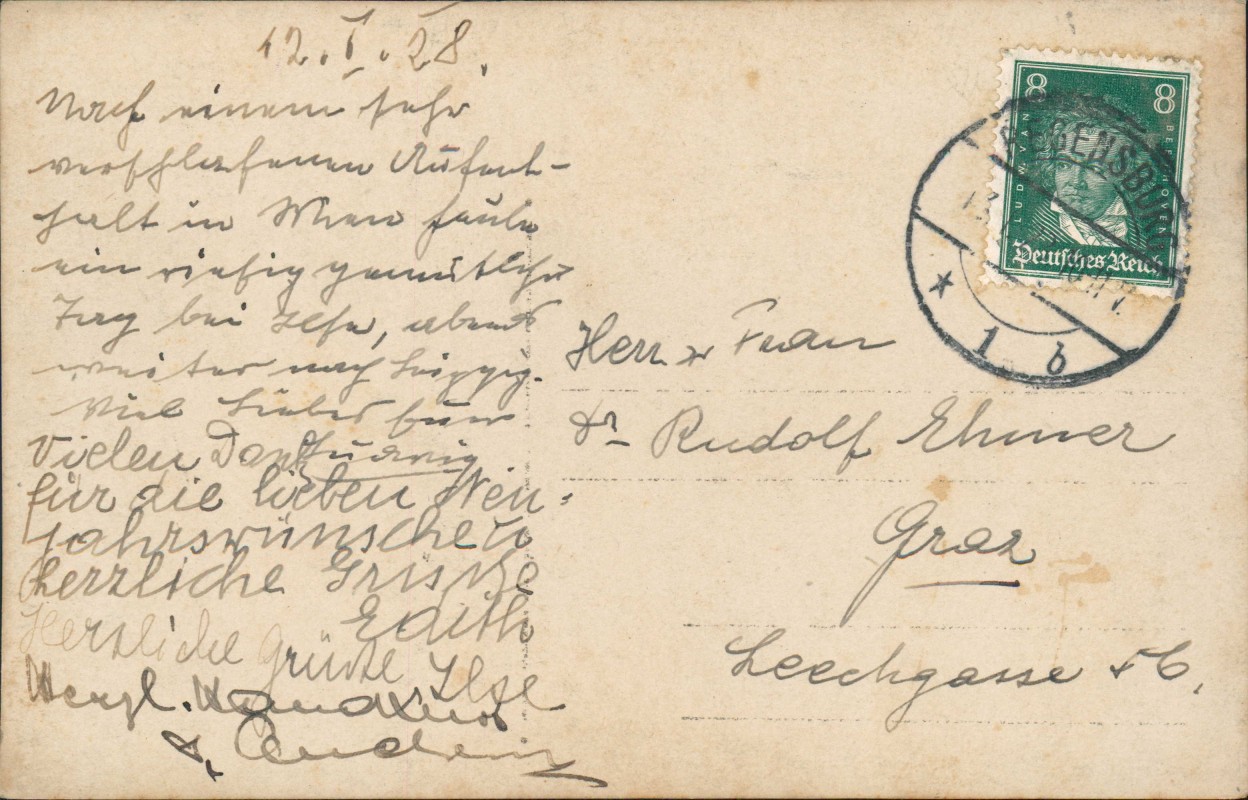 12.I.28.
Nach einem sehr
verschlafenen Aufent-
halt in Wien heute
ein riesig gemütlicher
Tag bei Ilse, abends
weiter nach Leipzig.
Viel Liebes Euer
Ludwig
Vielen Dank
für die lieben Neu-
jahrswünsche u.
herzliche Grüße
Edith
Herzliche Grüße Ilse
Herzl. Handkuss
8 8
LUDWIG VAN BEETHOVEN
Deutsches Reich
REGENSBURG
* 1 b
Herr u Frau
Dr Rudolf Ehmer
Graz
Leechgasse 56,